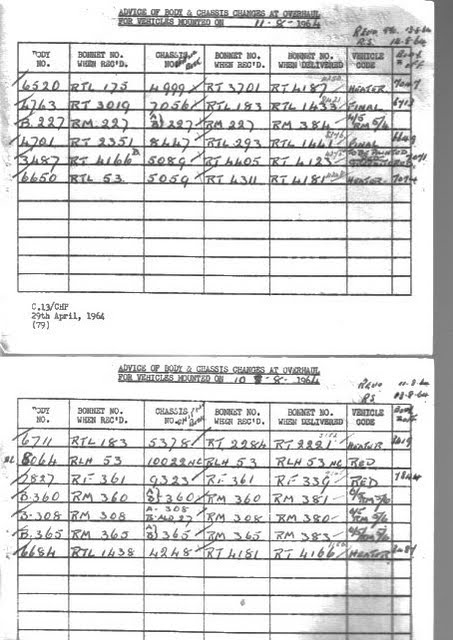 ADVICE OF BODY & CHASSIS CHANGES AT OVERHAUL
FOR VEHICLES MOUNTED ON 11-8-1964
BODY NO. BONNET NO. WHEN REC'D. CHASSIS NO. BONNET NO. WHEN REC'D. BONNET NO. WHEN DELIVERED VEHICLE CODE
6520 RTL 175 4999 RT 3701 RT 4187 HEATER 7047
4763 RT 3019 7056 RTL 183 RTL 1433 FINAL 6713
B.227 RM 227 A) B) 227 RM 227 RM 384 RM 5/4
4701 RT 2351 8447 RTL 293 RTL 1441 FINAL
3487 RT 4166 5089 RT 4405 RT 4123 TO BE PAINTED
6650 RTL 53 5059 RT 4311 RT 4181 HEATER 7094
C.13/CHF
29th April, 1964
(79)
ADVICE OF BODY & CHASSIS CHANGES AT OVERHAUL
FOR VEHICLES MOUNTED ON 10-8-1964
BODY NO. BONNET NO. WHEN REC'D. CHASSIS NO. BONNET NO. WHEN REC'D. BONNET NO. WHEN DELIVERED VEHICLE CODE
6711 RTL 183 5378 RT 2284 RT 2221 HEATER
8064 RLH 53 10022NC RLH 53 RLH 53 NC RED
7827 RF 361 9323 RF 361 RF 339 RED 7844
B.360 RM 360 A) B) 360 RM 360 RM 381 RM 5/6
B.308 RM 308 A. 308 RM 308 RM 380 RM 5/6
B.365 RM 365 A) B) 365 RM 365 RM 383 RM 5/6
6684 RTL 1438 4248 RT 4181 RT 4166 HEATER 3487